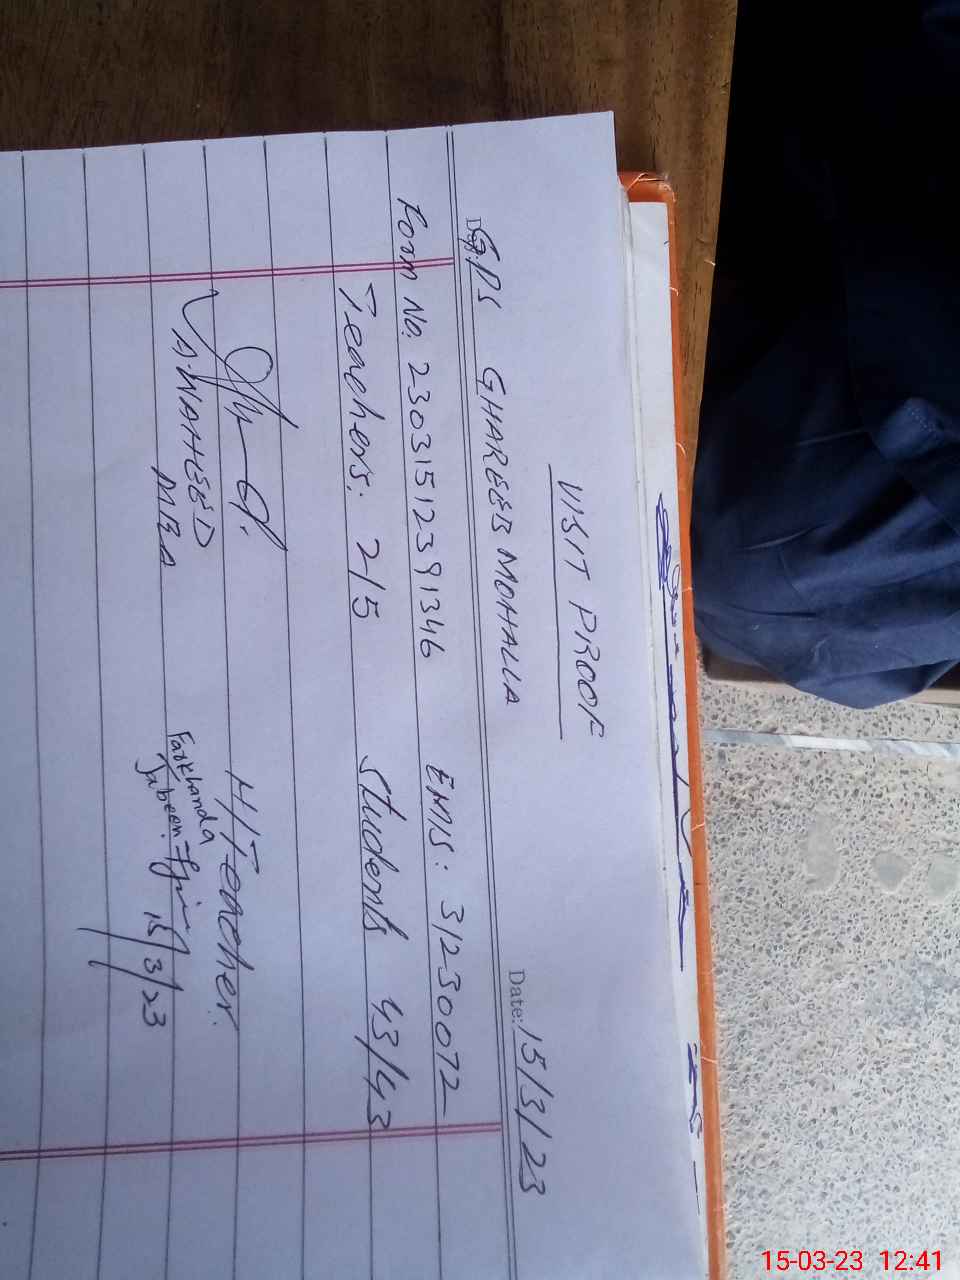 VISIT PROOF
Date: 15/3/23
GPS GHAREEB MOHALLA
Form No. 23031512391346 EMIS: 31230072
Teachers: 2/5 Students 43/43
H/Teacher.
A. WAHEED
MEA
Farkhanda
Jabeen
15/3/23
15-03-23 12:41